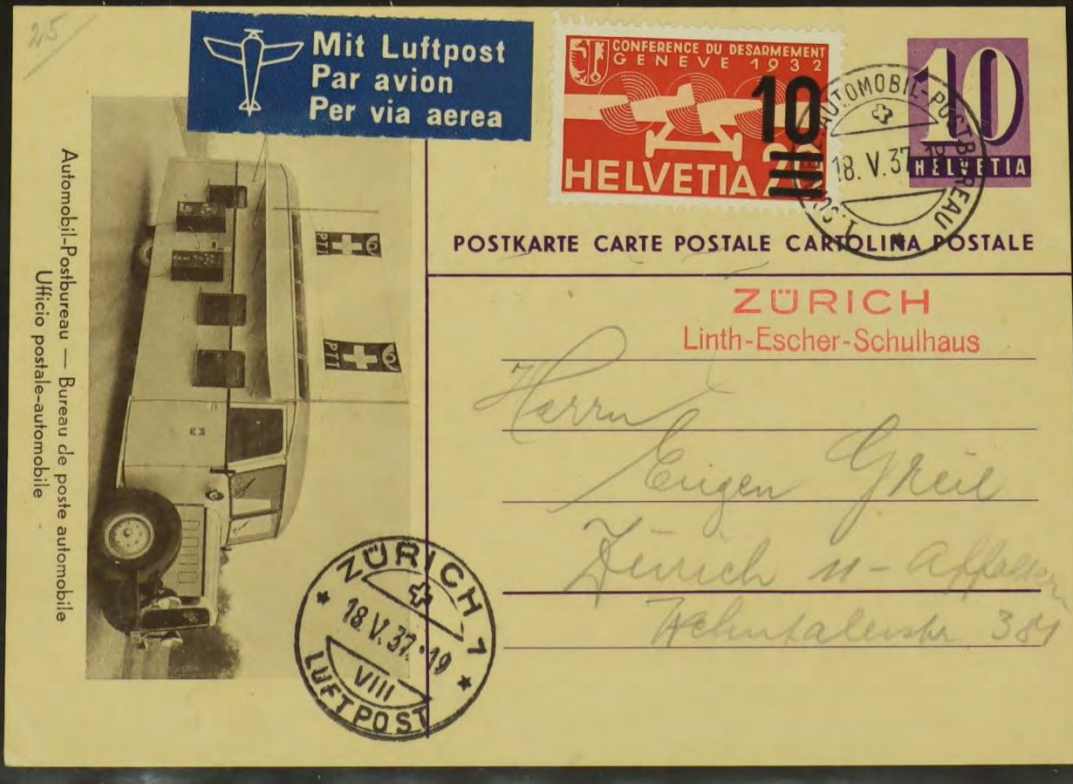 25
Mit Luftpost
Par avion
Per via aerea
CONFERENCE DU DESARMEMENT
GENEVE 1932
10
HELVETIA 20
10
HELVETIA
AUTOMOBIL-POSTBUREAU
18. V. 37
POSTKARTE CARTE POSTALE CARTOLINA POSTALE
ZÜRICH
Linth-Escher-Schulhaus
Herrn
Eugen Greil
Zürich 11-Affoltern
Wehntalerstr. 381
Automobil-Postbureau — Bureau de poste automobile
Ufficio postale-automobile
PTT
PTT
ZÜRICH 1
18. V. 37. 19
VIII
LUFTPOST